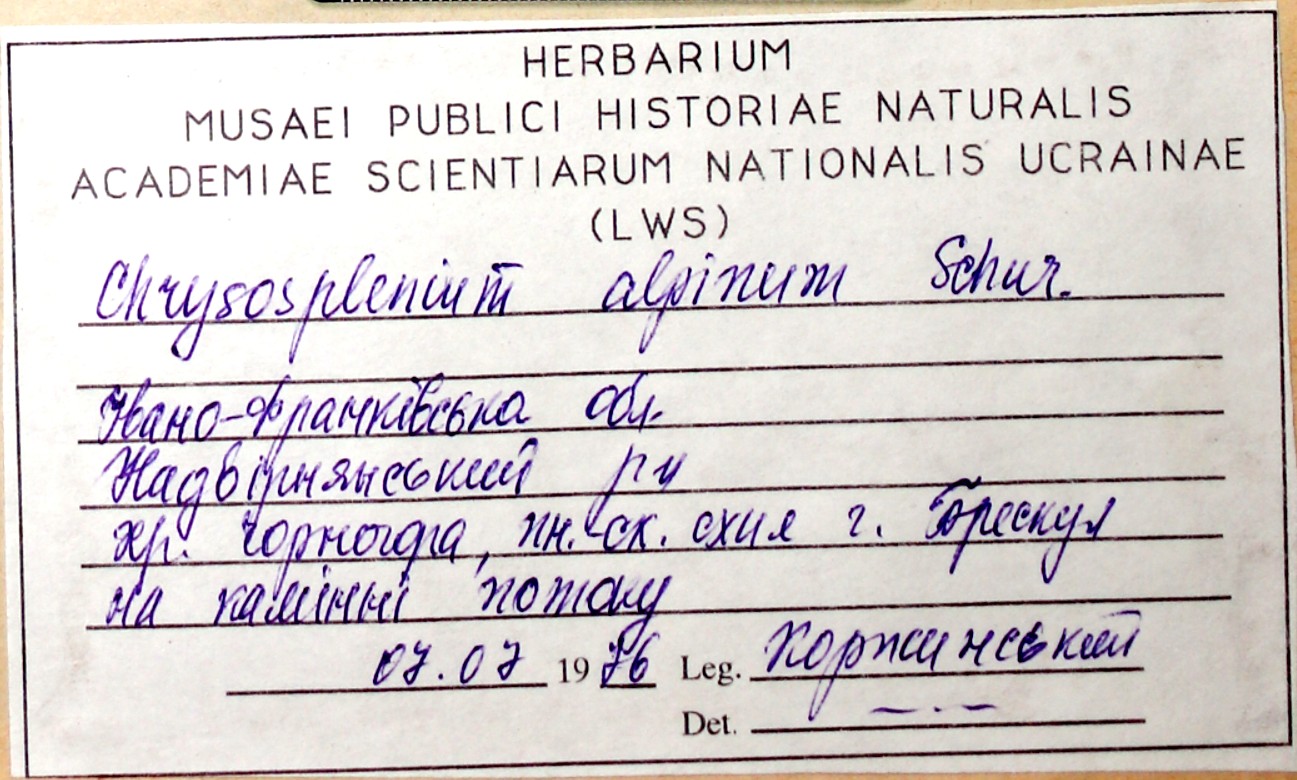 HERBARIUM
MUSAEI PUBLICI HISTORIAE NATURALIS
ACADEMIAE SCIENTIARUM NATIONALIS UCRAINAE
(LWS)
Chrysosplenium alpinum Schur.
Івано-Франківська обл.
Надвірнянський р-н
хр. Чорногора, пн.-сх. схил г. Брескул
на камінні потоку
07.07 1976 Leg. Коржинський
Det. — . —